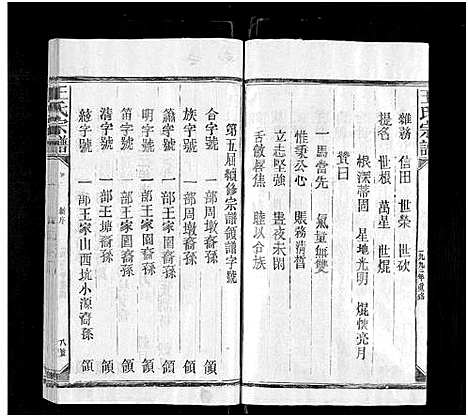 王氏宗譜
雜務 信田 世榮 世砍
提名 世根 萬星 世焜
根深蒂固 星地光明 焜悏亮月
贊曰
一馬當先 氣量無雙
惟秉公心 賬務精晳
立志堅強 晝夜未閑
舌敝唇焦 睦以合族
第五屆續修宗譜領譜字號
合字號 一部周墩裔孫 領
族字號 一部周墩裔孫 領
簫字號 一部王家園裔孫 領
明字號 一部王家園裔孫 領
笛字號 一部王家園裔孫 領
清字號 一部王塘裔孫 領
總字號 一部王家山西坑小源裔孫 領
王氏宗譜